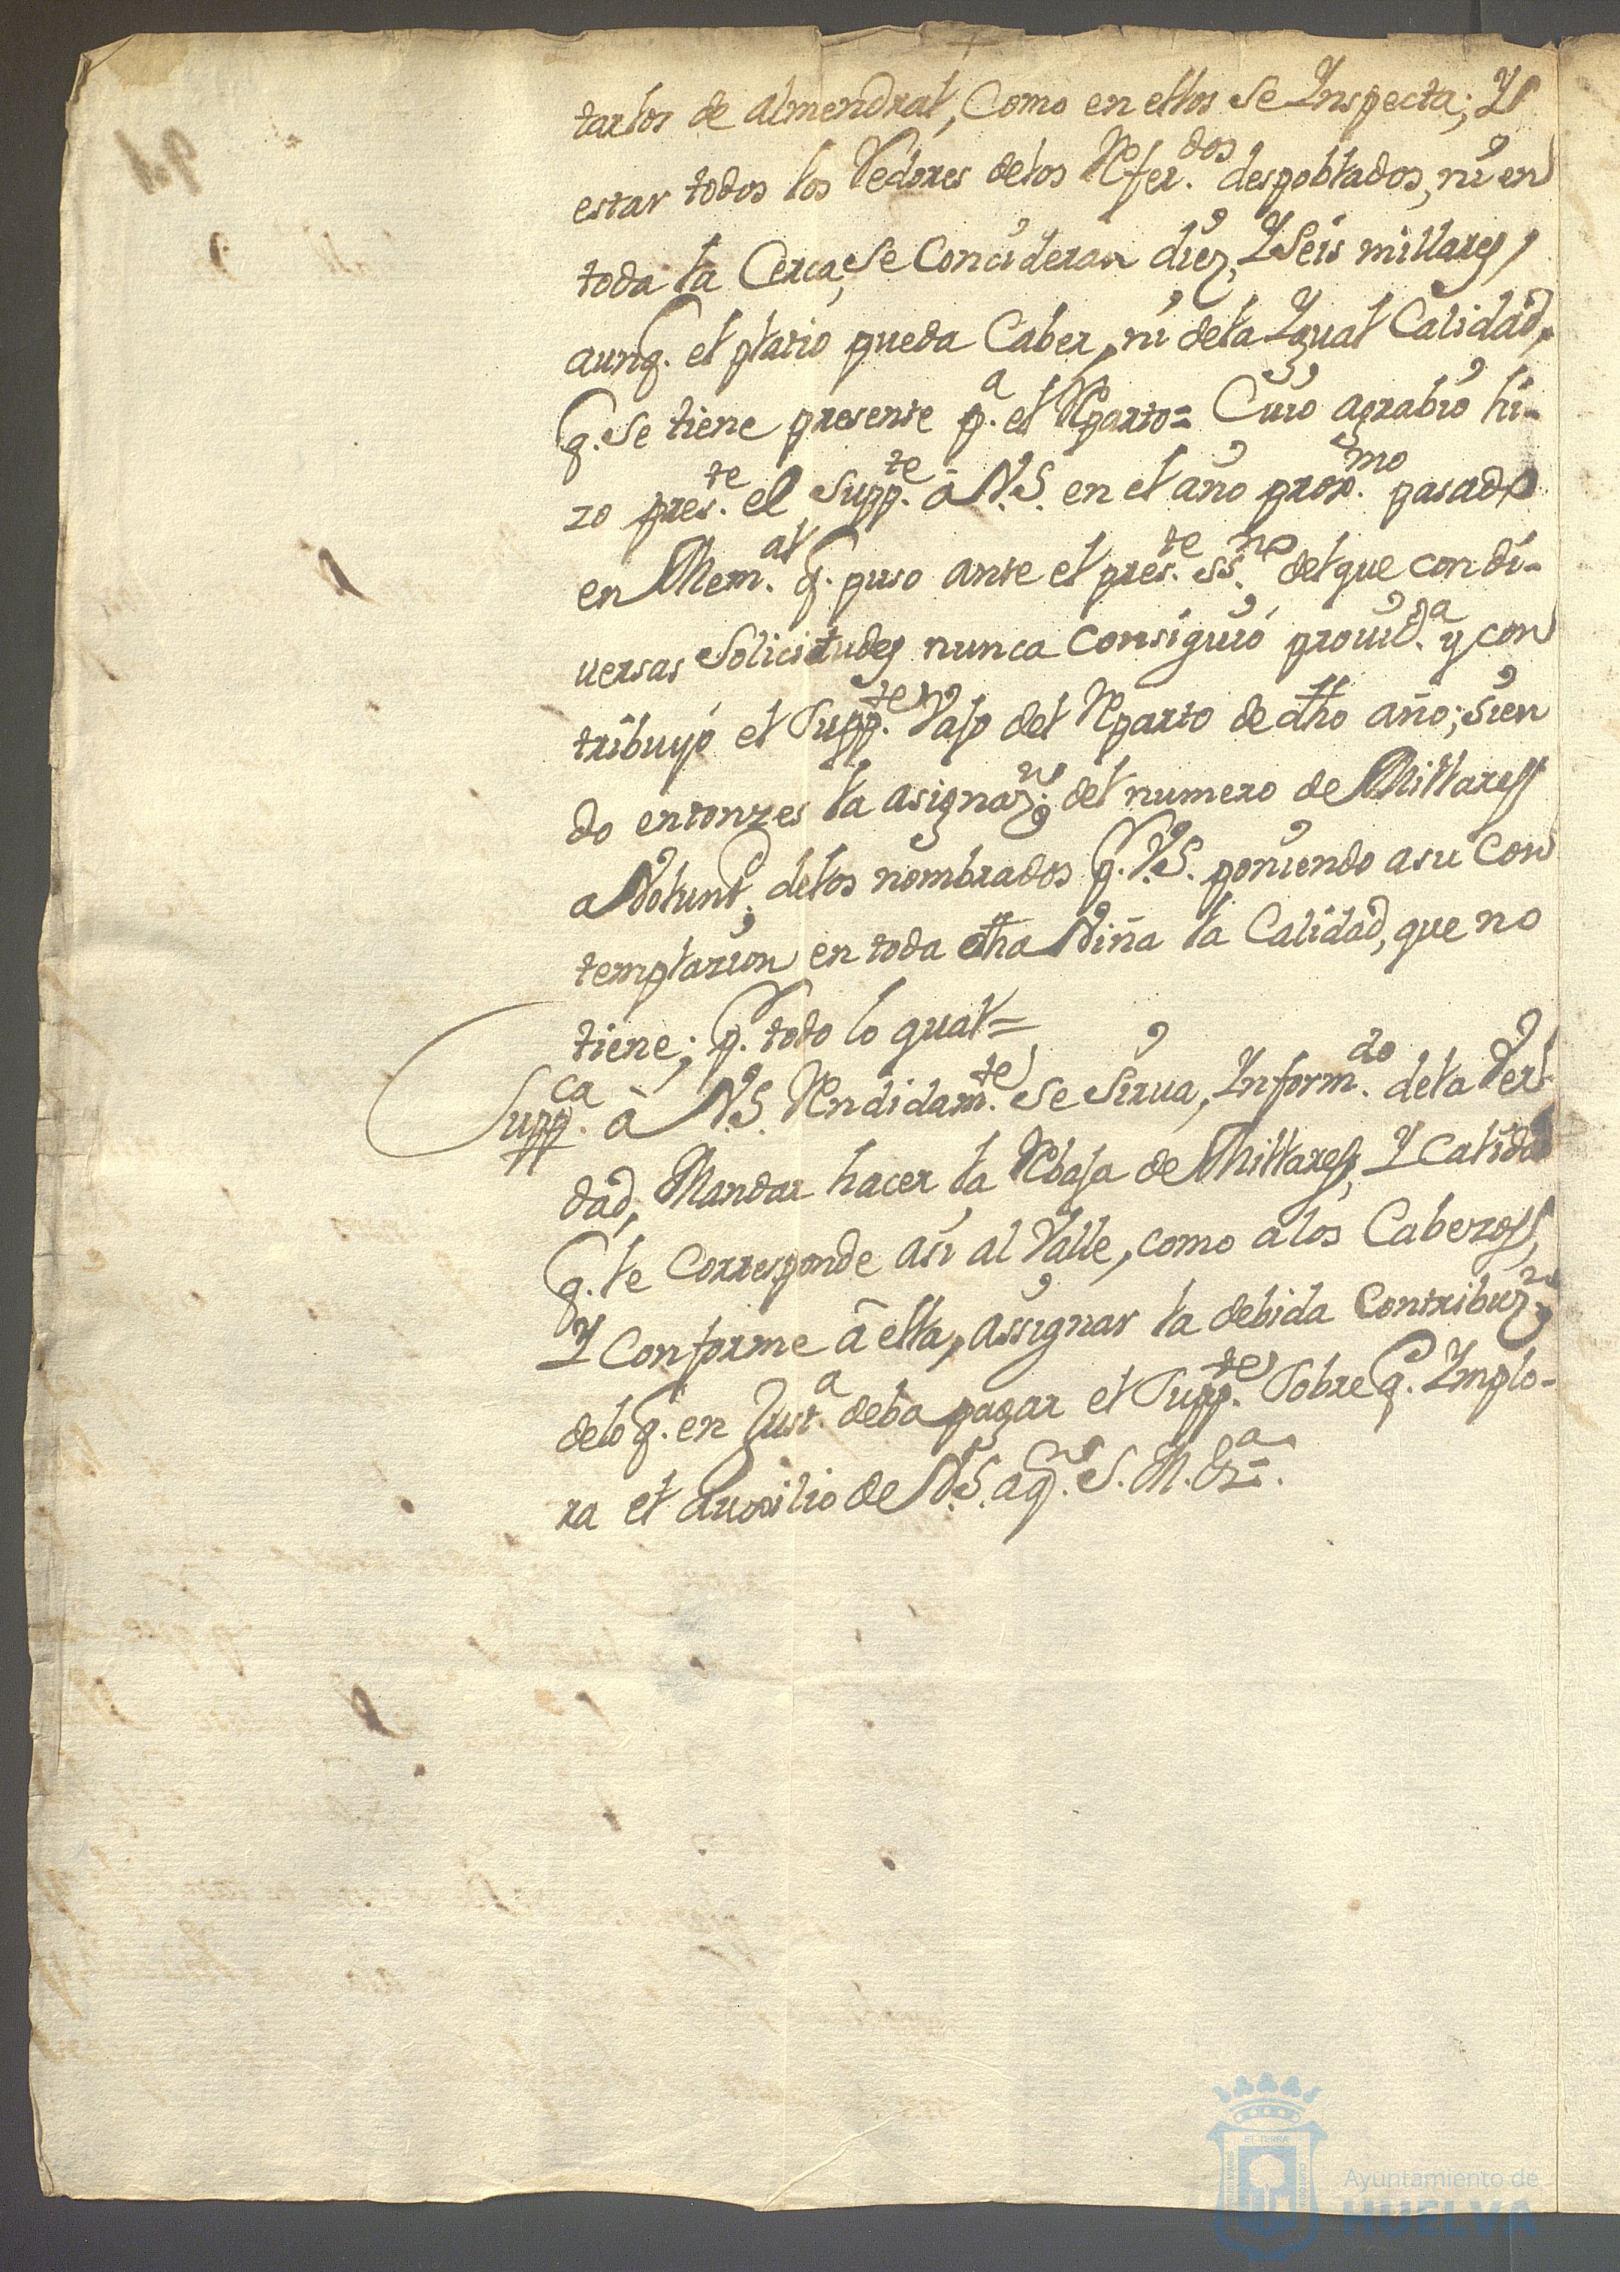 tarlos de almendral, Como en ellos se Ynspecta; Y
estar todos los Vedores delos Refer.dos despoblados, ni en
toda la Cerca, se Concideran diez, Y Seis millares,
aunq. el plario pueda Caber, ni dela Ygual Calidad,
q. se tiene presente p.a el Reparto= Cuio agrabio hi-
zo pres.te el supp.te â V.S. en el año prox.mo pasado
en Mem.al q. puso ante el pres.te ss.no del que con di-
versas Solicitudes nunca Consiguió prouid.a y con
tribuyó el Supp.te Vajo del Reparto de dho año; sien
do entonzes la asignaz.n del numero de Millares
a Volunt.d delos nombrados p. V.S. poniendo a su Con
templazion en toda dha Viña la Calidad, que no
tiene; p. todo lo qual=
Supp.ca à V.S. Rendidam.te se sirua, Inform.do dela Ver-
dad, Mandar hacer la Rebaja de Millares, Y Calidad
q. le Corresponde asi al Valle, como a los Cabezos,
Y Conforme â ella, assignar la debida Contribuz.n
delo q. en Just.a deba pagar el Supp.te Sobre q. Implo-
ra el auxilio de V.S. a q.n S. M. Gra.
ET TERRÆ
Ayuntamiento de
HUELVA